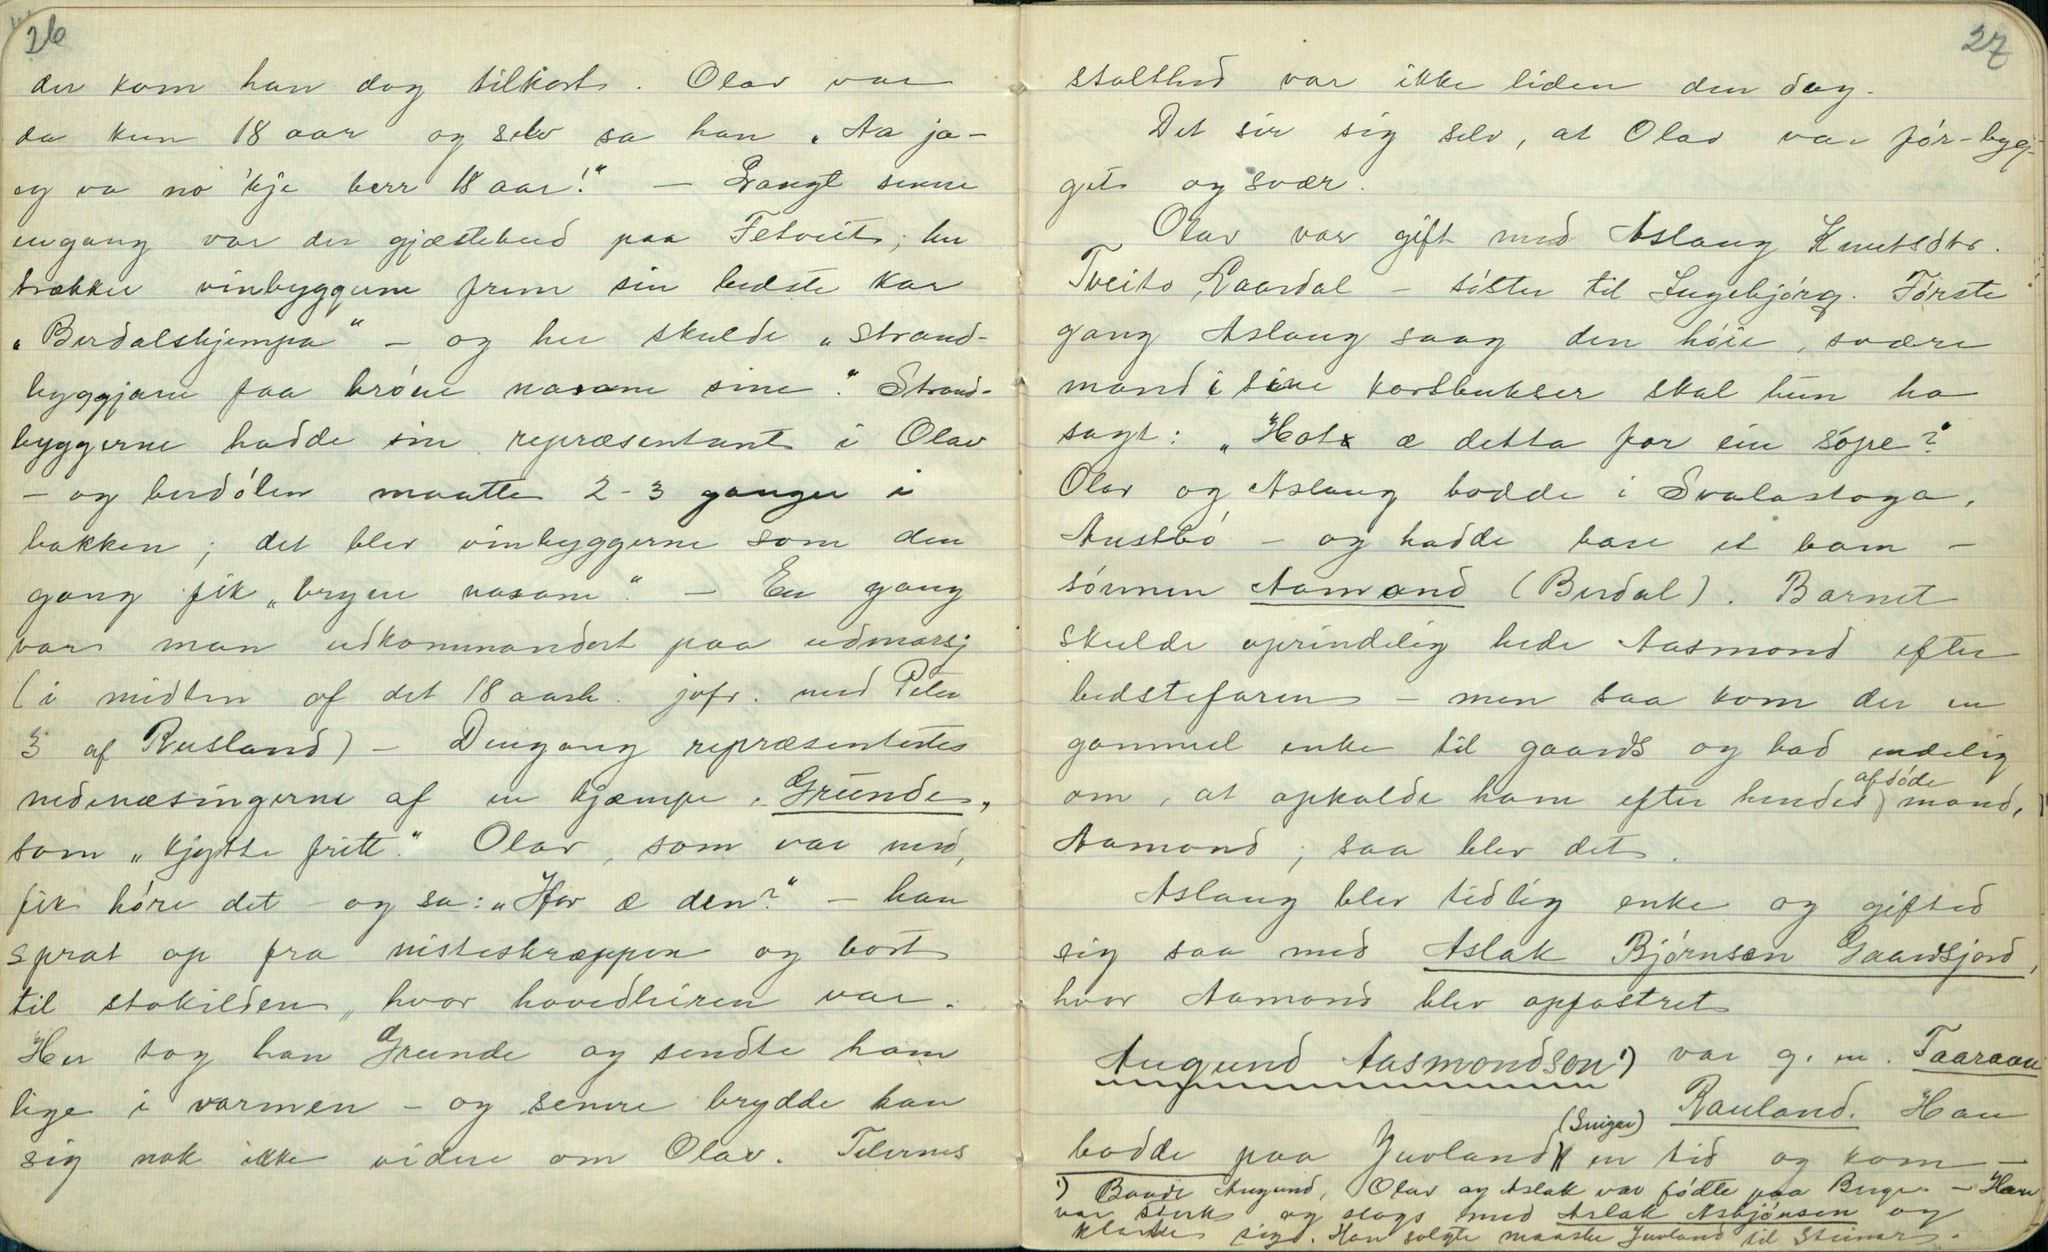 26
der kom han dog tilkort. Olav var
da kun 18 aar og selv sa han „Aa ja -
eg va no 'kje berr 18 aar!" — Langt senere
engang var der gjæstebud paa Fetveit; her
trækker vinbyggerne frem sin bedste kar
„Berdalskjempa" - og her skulde „strand-
byggjarne faa brøne nasane sine". Strand-
byggerne hadde sin repræsentant i Olav
- og berdølen maatte 2-3 ganger i
bakken; det blev vinbyggerne som den
gang fik „bryne nasane". - En gang
var man udkommandert paa udmarsj
(i midten af det 18 aarh. jvfr. med Peter
3 af Rusland) - Dengang repræsentertes
nedenæsingerne af en kjæmpe, Grunde,
som „kjytte fritt". Olav, som var med,
fik høre det - og sa: „Hor æ den?" - han
sprat op fra nisteskræppen og bort
til stokilden, hvor hovedhæren var.
Her tog han Grunde og sendte ham
lige i varmen - og senere brydde han
sig nok ikke videre om Olav. Telernes
27
stolthed var ikke liden den dag.
Det sir sig selv, at Olav var før-byg-
get og svær.
Olav var gift med Aslaug Knutsdtr.
Tveito, Laardal - søster til Ingebjørg. Første
gang Aslaug saag den høie, svære
mand i sine kortbukser skal hun ha
sagt: „Hot æ detta for ein sope?"
Olav og Aslaug bodde i Svalastoga,
Austbø - og hadde bare et barn -
sønnen Aamond (Berdal). Barnet
skulde oprindelig hede Aasmond efter
bedstefaren - men saa kom der en
gammel enke til gaards og bad endelig
om, at opkalde ham efter hendes afdøde mand,
Aamond; saa blev det.
Aslaug blev tidlig enke og gifted
sig saa med Aslak Bjørnsen Gaardsjord,
hvor Aamond blev opfostret
Augund Aasmondson 1) var g. m. Taaraan
Rauland. Han
bodde paa Juvland (Seiger) en tid og kom -
1) Baade Augund, Olav og Aslak var fødte paa Berge - Han
var sterk og slogs med Aslak Asbjønsen og
klarte sig. Han solgte maaske Juvland til Steinar.